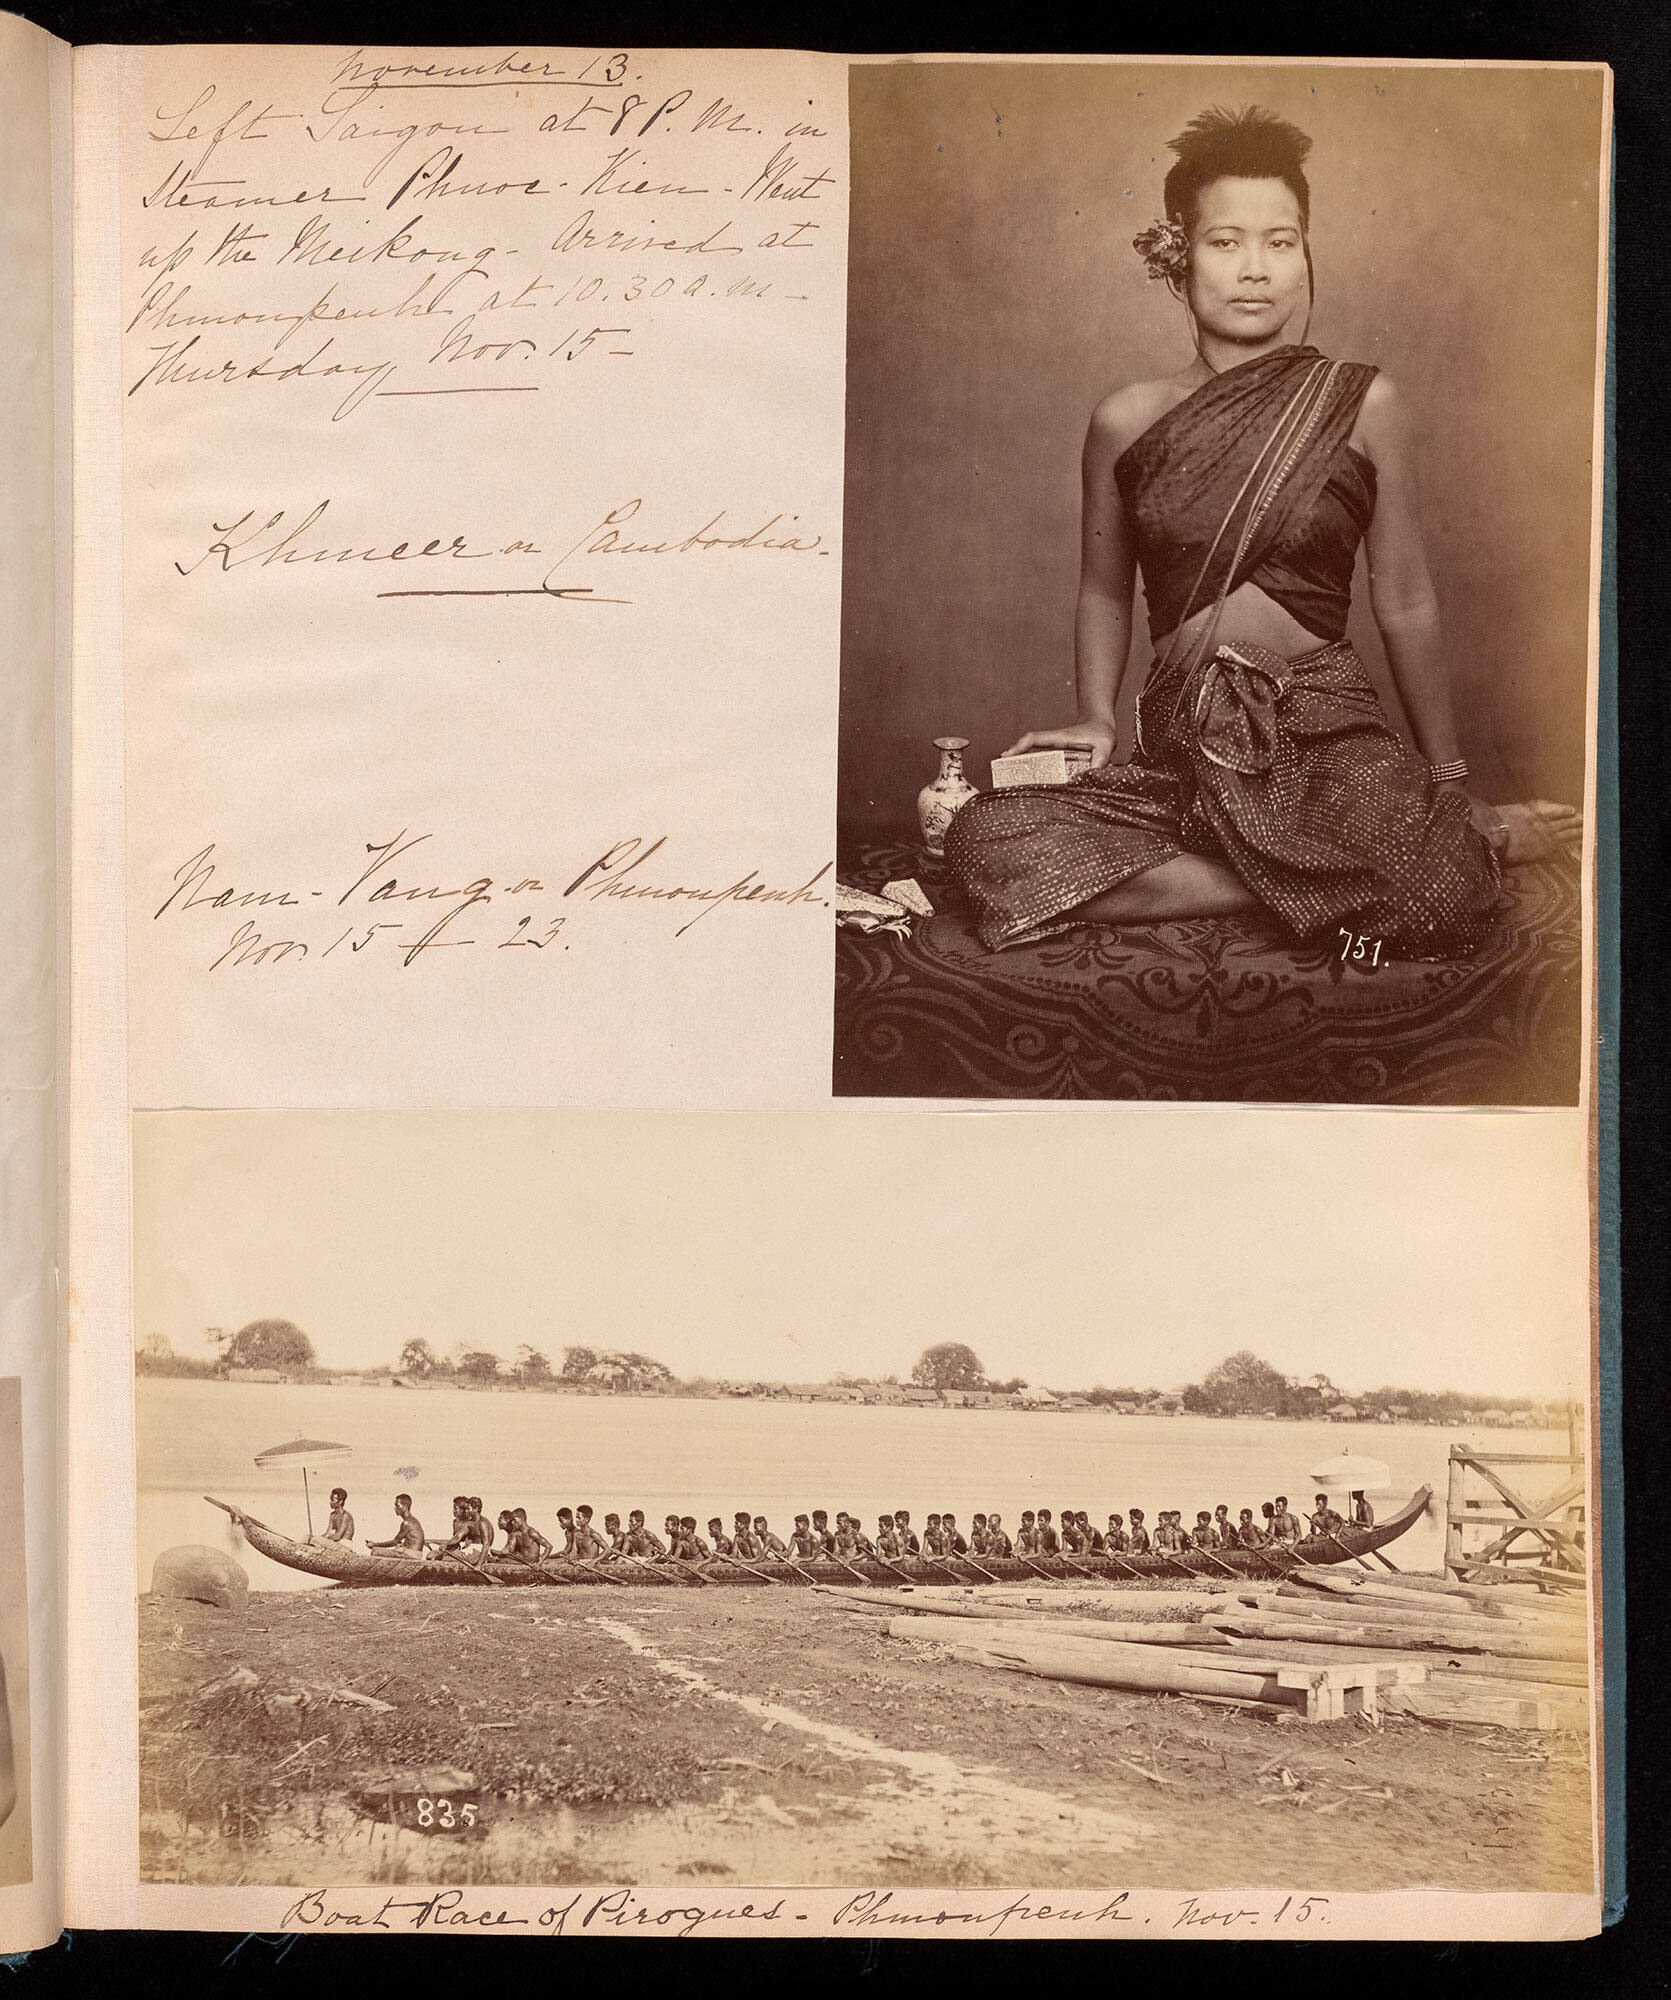 November 13.
Left Saigon at 8 P.M. in
Steamer Phuoc-Kien - Went
up the Meikong - Arrived at
Phnounpenh at 10.30 a.m -
Thursday Nov. 15 -
Khmeer or Cambodia.
Nam-Vang or Phnounpenh.
Nov. 15 - 23.
751.
835
Boat Race of Pirogues - Phnounpenh. Nov. 15.